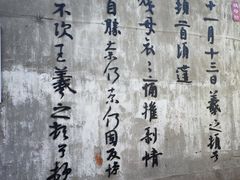 十一月十三日羲之頓首
頓首頃遘
母哀哀痛摧剥情
自勝奈何奈何因反惨
不次王羲之頓首頓